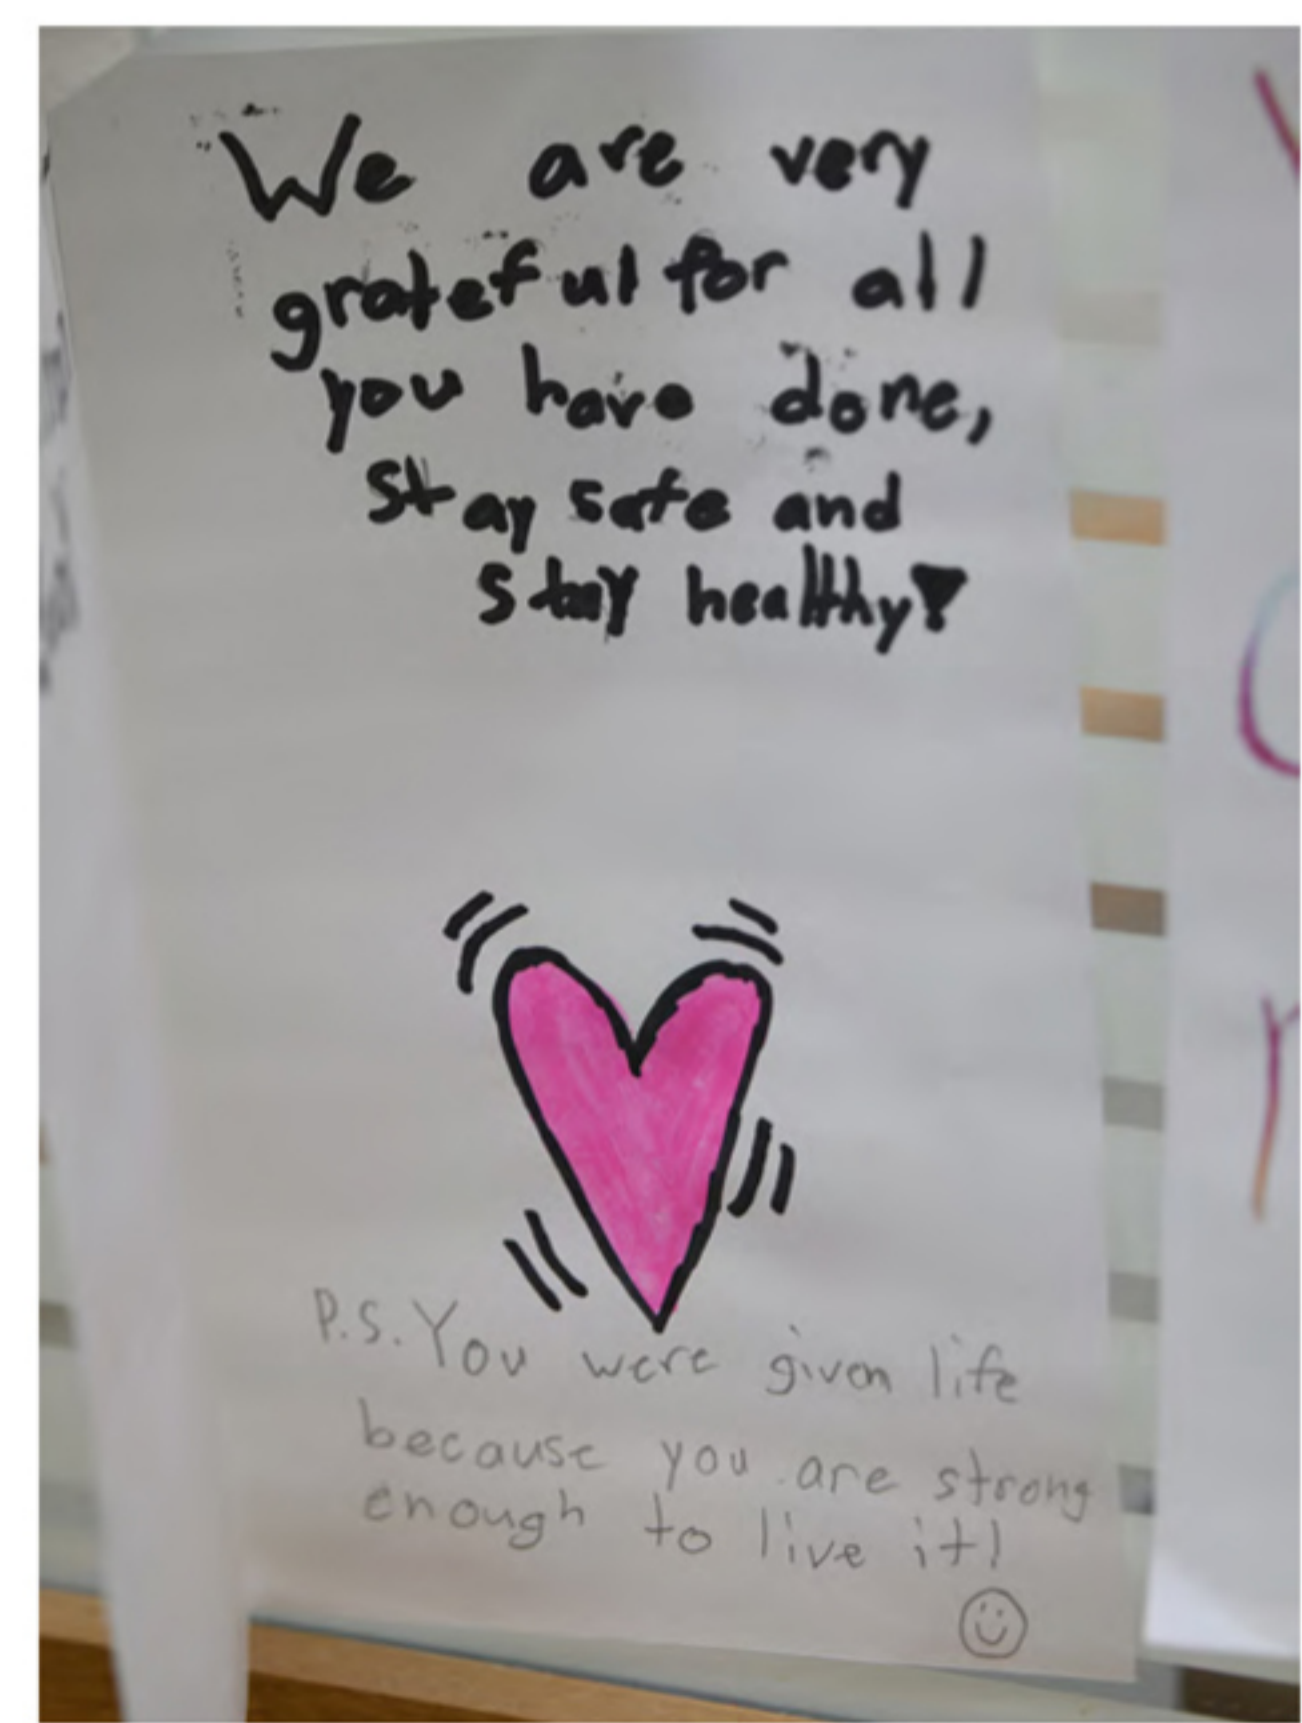 We are very
grateful for all
you have done,
stay safe and
stay healthy!
P.S. You were given life
because you are strong
enough to live it!